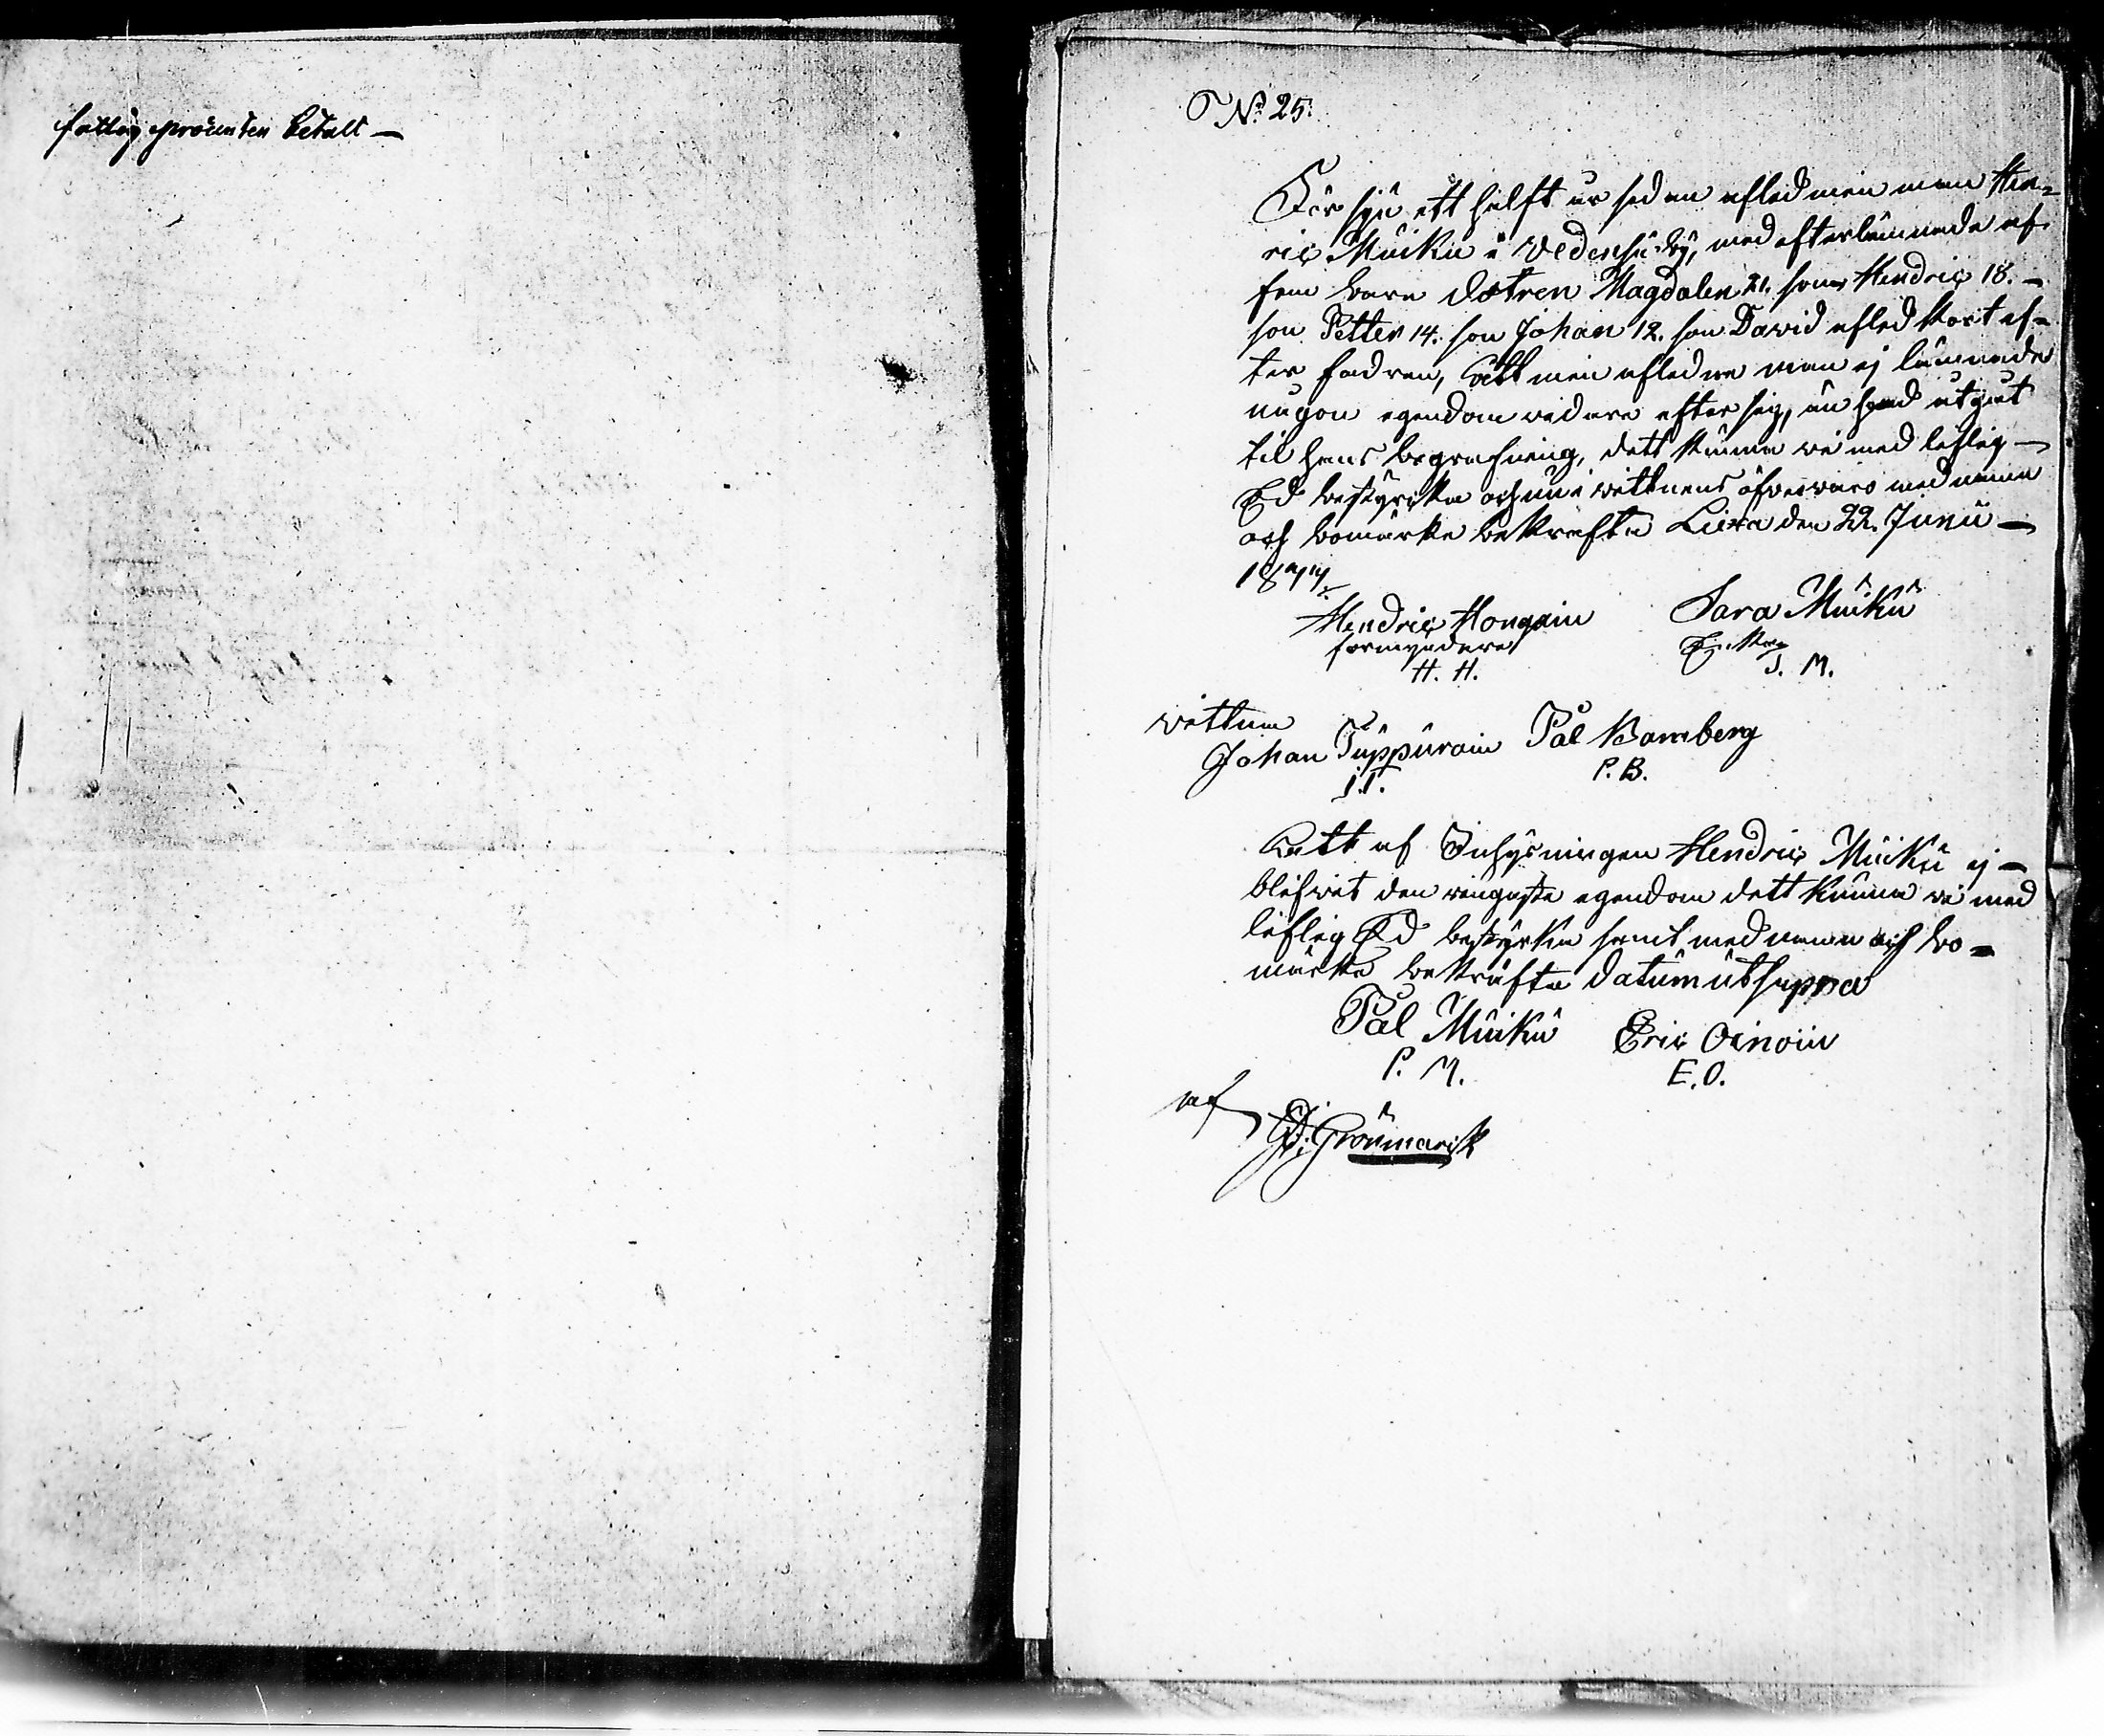 fattig procenten betalt —
No 25:
För sju ett halft år sedan afled min man Hen=
ric Muikŭ i Vedensŭ by, med efterlämnade af
fem barn dotren Magdalen 21. son Hendric 18. —
son Petter 14. son Johan 12. son David afled kort ef=
ter fadren, Att min afledne man ej lämnade
någon egendom vidare efter sig, än hvad utgåt
til hans begrafning, dett kunna vi med liflig —
Ed bestyrcka och uni vittnens öfvervaro med namn
och bomärke bekrafta den 22. Junii —
Hendric Hongain Sara Muikŭ
formyndare Enka
H. H. S. M.
vittna
Johan Tŭppŭrain Pål Bamberg
J.T. P. B.
Att af Inhysningen Hendric Muikŭ ej —
blifvit den ringaste egendom dett kunna vi med
liflig Ed bestyrka samt med namn och bo=
märke bekräfta datum ut supra
Pål Muikŭ Eric Oinoin
P. M. E. O.
af
Grönmarck